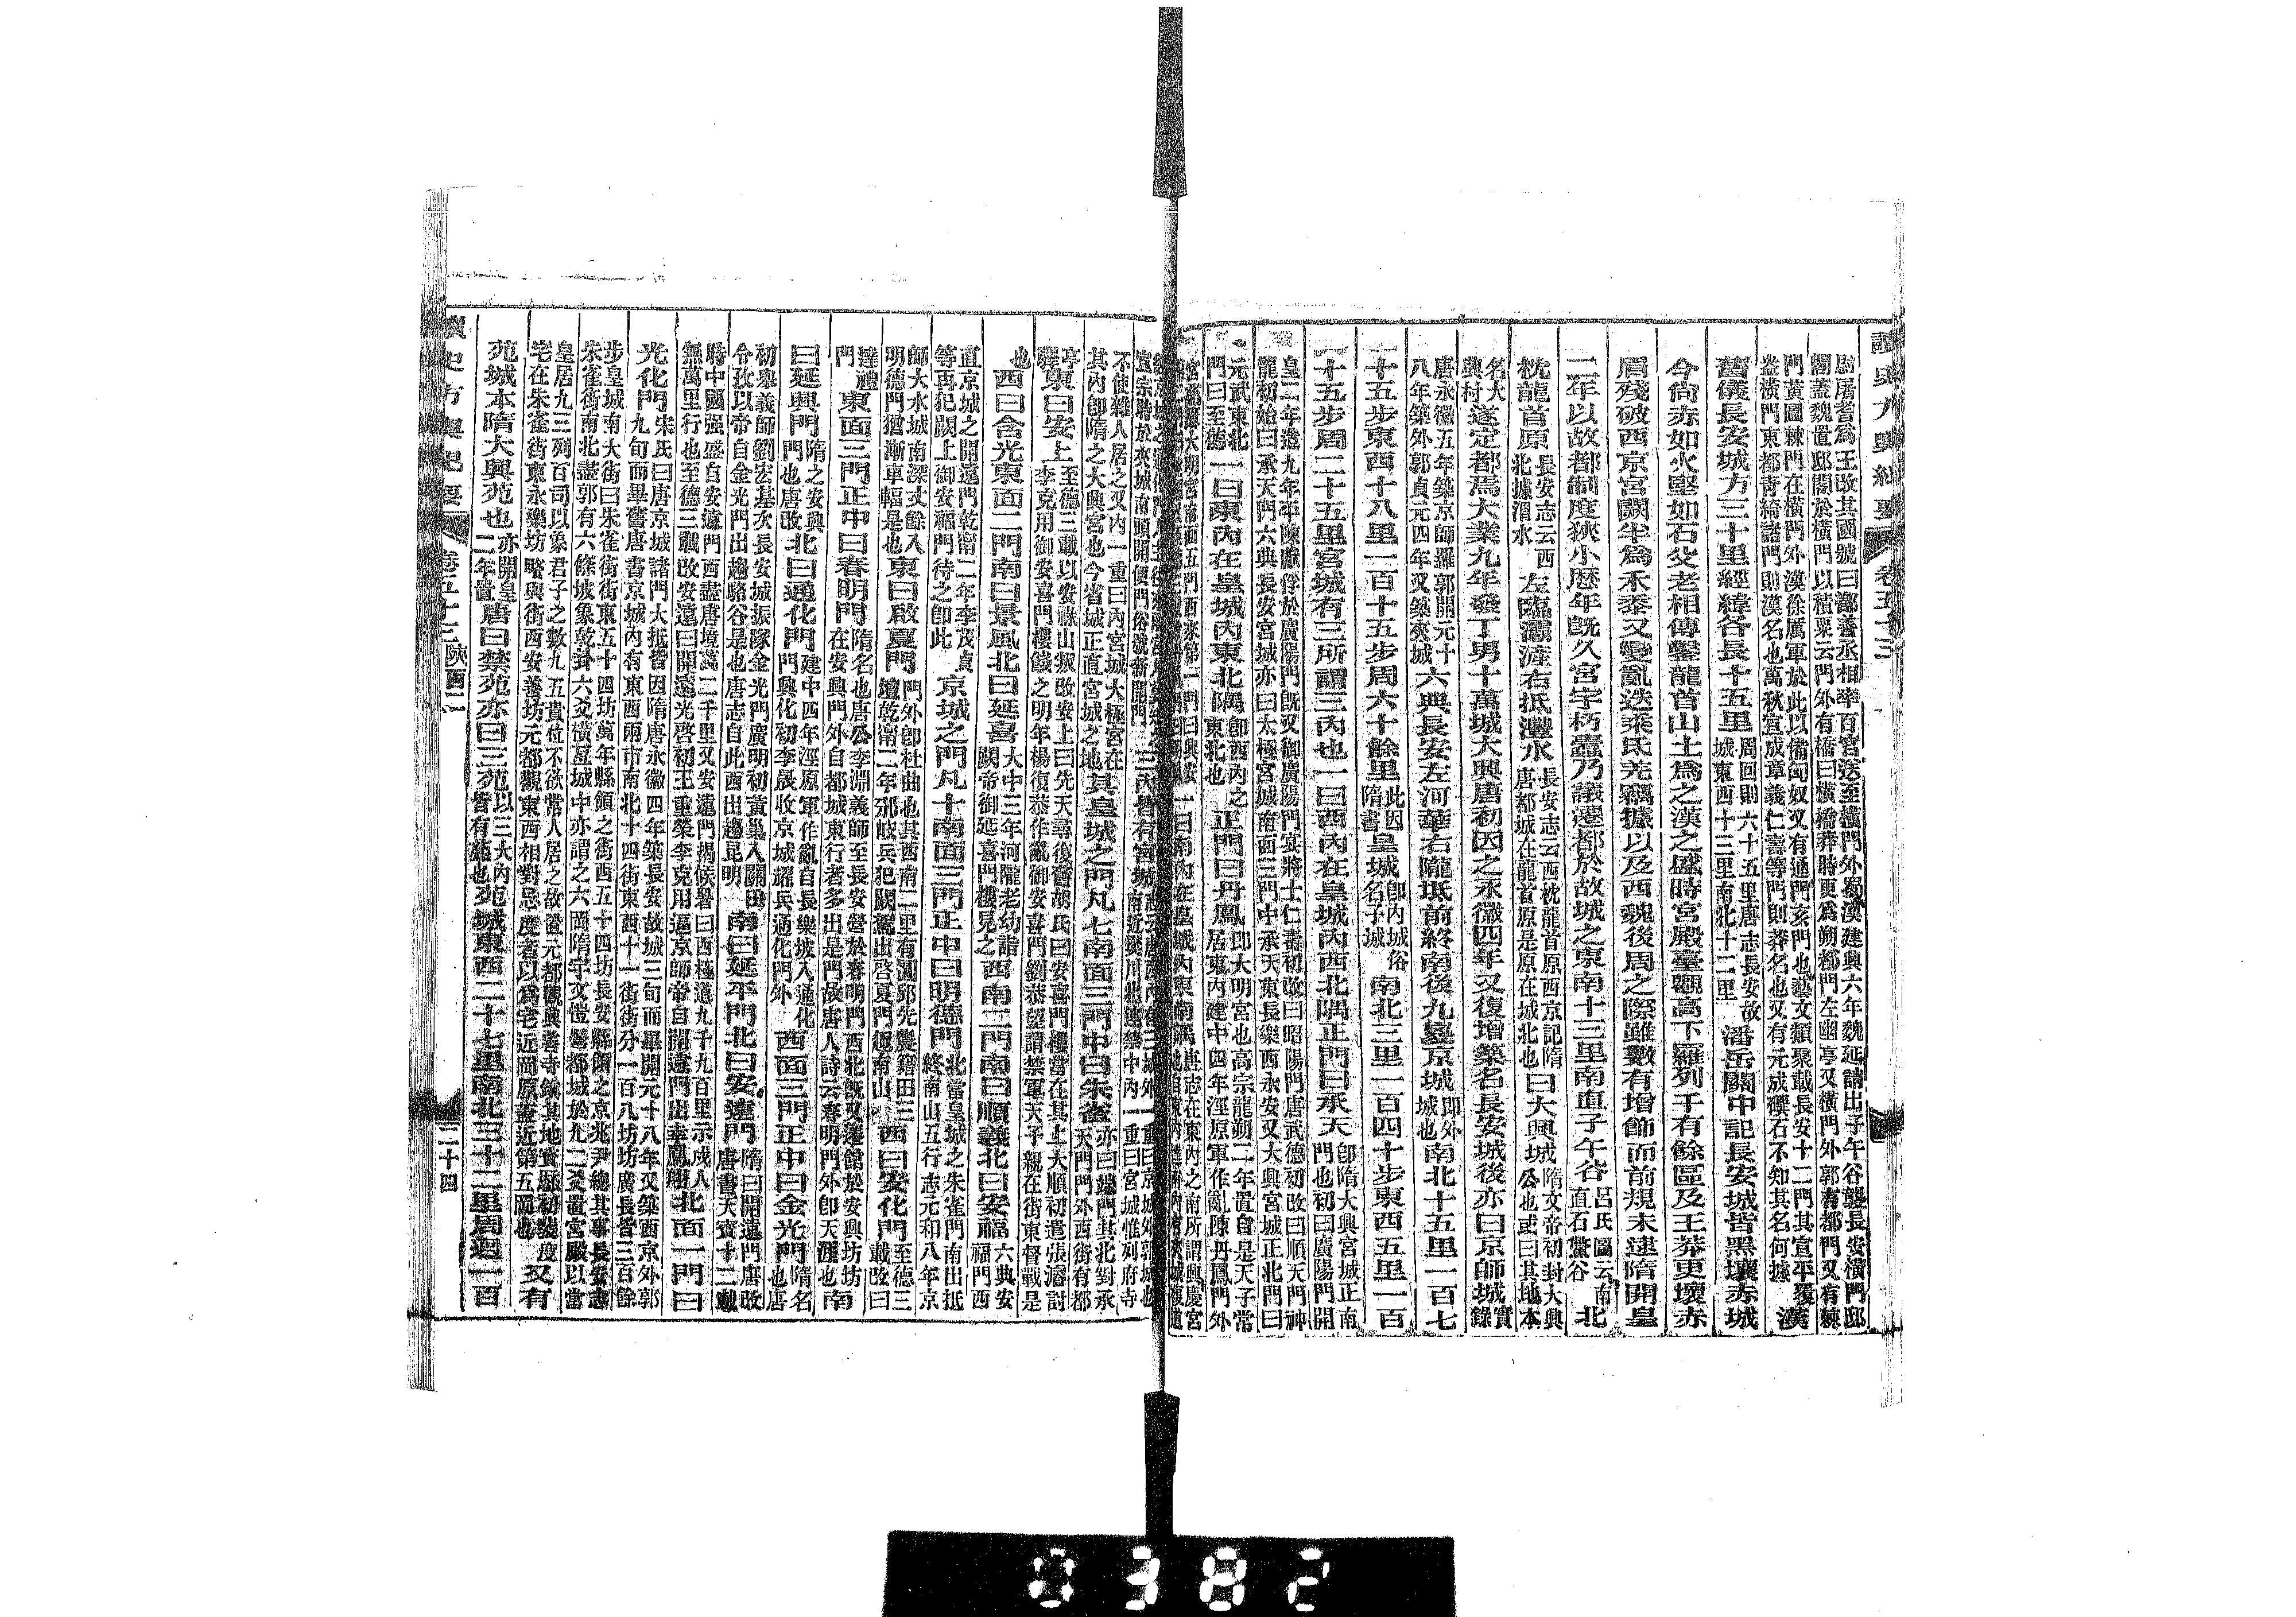 尉屠耆爲王改其國號曰鄯善丞相率百官送至橫門外蜀漢建興六年魏延請出子午谷襲長安橫門邸
閣蓋魏置邸閣於橫門以積粟云門外有橋曰橫橋莽時更爲朔都門左幽亭又橫門外郭有都門又有棘
門黃圖棘門在橫門外漢徐厲軍於此以備匈奴又有通門亥門也藝文類聚載長安十二門其宣平覆
盎橫門東都靑綺諸門則漢名也萬秋宣成章義仁壽等門則莽名也又有元成礫石不知其名何據 漢
舊儀長安城方三十里經緯各長十五里周回則六十五里唐志長安故城東西十三里南北十二里 潘岳關中記長安城皆黑壤赤城
今尙赤如火堅如石父老相傳鑿龍首山土爲之漢之盛時宮殿臺觀高下羅列千有餘區及王莽更壞赤
眉殘破西京宮闕半爲禾黍又變亂迭乘氐羌竊據以及西魏後周之際雖數有增飾而前規未逮隋開皇
二年以故都制度狹小歷年旣久宮宇朽蠹乃議遷都於故城之東南十三里南直子午谷呂氏圖云南直石鱉谷北
枕龍首原長安志云西北據渭水 左臨灞滻右抵灃水長安志云西枕龍首原西京記隋唐都城在龍首原是原在城北也曰大興城隋文帝初封大興公也或曰其地本
名大興村遂定都焉大業九年發丁男十萬城大興唐初因之永徽四年又復增築名長安城後亦曰京師城實錄
唐永徽五年築京師羅郭開元十八年築外郭貞元四年又築夾城六典長安左河華右隴坻前終南後九嵕京城卽外城也南北十五里一百七
十五步東西十八里一百十五步周六十餘里此因隋書皇城卽內城俗名子城南北三里一百四十步東西五里一百
一十五步周二十五里宮城有三所謂三內也一曰西內在皇城內西北隅正門曰承天卽隋大興宮城正南門也初曰廣陽門開
皇二年造九年平陳獻俘於廣陽門旣又御廣陽門宴將士仁壽初改曰昭陽門唐武德初改曰順天門神
龍初始曰承天門六典長安宮城亦曰太極宮城南面三門中承天東長樂西永安又大興宮城正北門曰
元武東北門曰至德一曰東內在皇城內東北隅卽西內之東北也正門曰丹鳳卽大明宮也高宗龍朔二年置自是天子常居東內建中四年涇原軍作亂陳丹鳳門外
不使雜人居之又內一重曰內宮城大極宮在
其內卽隋之大興宮也今省城正直宮城之地其皇城之門凡七南面三門中曰朱雀亦曰端門其北對承天門門外西街有都
亭驛東曰安上至德三載以安祿山叛改安上曰先天尋復舊胡氏曰安喜門樓當在其上大順初遣張濬討李克用御安喜門樓餞之明年楊復恭作亂御安喜門劉恭望謂禁軍天子親在街東督戰是
也西曰含光東面二門南曰景風北曰延喜大中三年河隴老幼詣闕帝御延喜門樓見之西南二門南曰順義北曰安福六典安福門西
直京城之開遠門乾甯二年李茂貞等再犯闕上御安福門待之卽此 京城之門凡十南面三門正中曰明德門北當皇城之朱雀門南出抵終南山五行志元和八年京
師大水城南深丈餘入明德門猶漸車輻是也東曰啟夏門門外卽杜曲也其西南二里有圜邱先農籍田三壇乾甯二年邠岐兵犯闕駕出啓夏門趨南山西曰安化門至德三載改曰
達禮門 東面三門正中曰春明門隋名也唐公李淵義師至長安營於春明門西北旣又遷館於安興坊坊在安興門外自都城東行者多出是門故唐人詩云春明門外卽天涯也南
曰延興門隋之安興門也唐改北曰通化門建中四年涇原軍作亂自長樂坡入通化門興化初李晟收京城耀兵通化門外西面三門正中曰金光門隋名也唐
初舉義師劉宏基次長安城振隊金光門廣明初黃巢入關田令孜以帝自金光門出趨駱谷是也唐志自此西出趨昆明 南曰延平門北曰安遠門隋曰開遠門唐改唐書天寶十二載
時中國强盛自安遠門西盡唐境萬二千里又安遠門揭候署曰西極道九千九百里示戍人
無萬里行也至德二載改安遠曰開遠光啓初王重榮李克用逼京師帝自開遠門出幸鳳翔北面一門曰
光化門朱氏曰唐京城諸門大抵皆因隋唐永徽四年築長安故城三旬而畢開元十八年又築西京外郭九旬而畢舊唐書京城內有東西兩市南北十四街東西十一街街分一百八坊坊廣長皆三百餘
步皇城南大街曰朱雀街街東五十四坊萬年縣領之街西五十四坊長安縣領之京兆尹總其事長安志
朱雀街南北盡郭有六條坡象乾卦六爻橫亙城中亦謂之六岡隋宇文愷營都城於九二爻置宮殿以當
皇居九三列百司以象君子之數九五貴位不欲常人居之故置元都觀興善寺鎮其地寶歷初裴度
宅在朱雀街東永樂坊略與街西安善坊元都觀東西相對忌度者以爲宅近岡原蓋近第五岡也 又有
苑城本隋大興苑也亦開皇二年置唐曰禁苑亦曰三苑以三大內皆有苑也苑城東西二十七里南北三十二里周廻一百
讀史方輿紀要 卷五十三 陝西二 二十四
0382